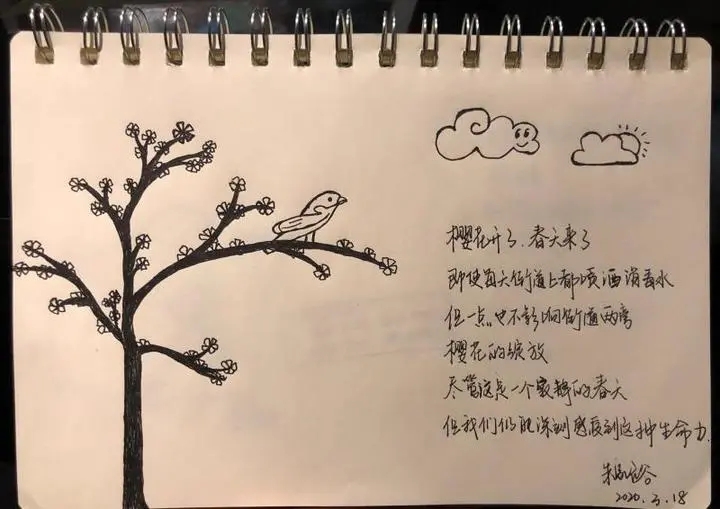 樱花开了、春天来了
即使每天街道上都喷洒消毒水
但一点也不影响街道两旁
樱花的绽放
尽管这是一个寂静的春天
但我们仍能深刻感receive到这种生命力.
2020.3.18